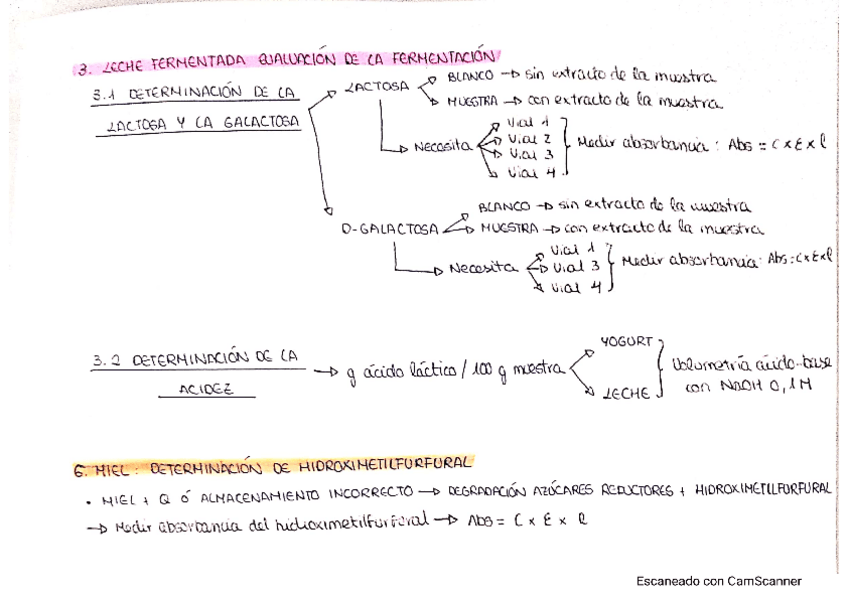 3. LECHE FERMENTADA EVALUACIÓN DE LA FERMENTACIÓN
3.1 DETERMINACIÓN DE LA
LACTOSA Y LA GALACTOSA
LACTOSA
BLANCO → sin extracto de la muestra
MUESTRA → con extracto de la muestra
Necesita
Vial 1
Vial 2
Vial 3
Vial 4
Medir absorbancia : Abs = C x E x l
D-GALACTOSA
BLANCO → sin extracto de la muestra
MUESTRA → con extracto de la muestra
Necesita
Vial 1
Vial 3
Vial 4
Medir absorbancia: Abs = C x E x l
3.2 DETERMINACIÓN DE LA
ACIDEZ
→ g ácido láctico / 100 g muestra
YOGURT
LECHE
Volumetría ácido-base
con NaOH 0,1M
6. MIEL : DETERMINACIÓN DE HIDROXIMETILFURFURAL
• MIEL + Q Ó ALMACENAMIENTO INCORRECTO → DEGRADACIÓN AZÚCARES REDUCTORES + HIDROXIMETILFURFURAL
→ Medir absorbancia del hidroximetilfurfural → Abs = C x E x l
Escaneado con CamScanner